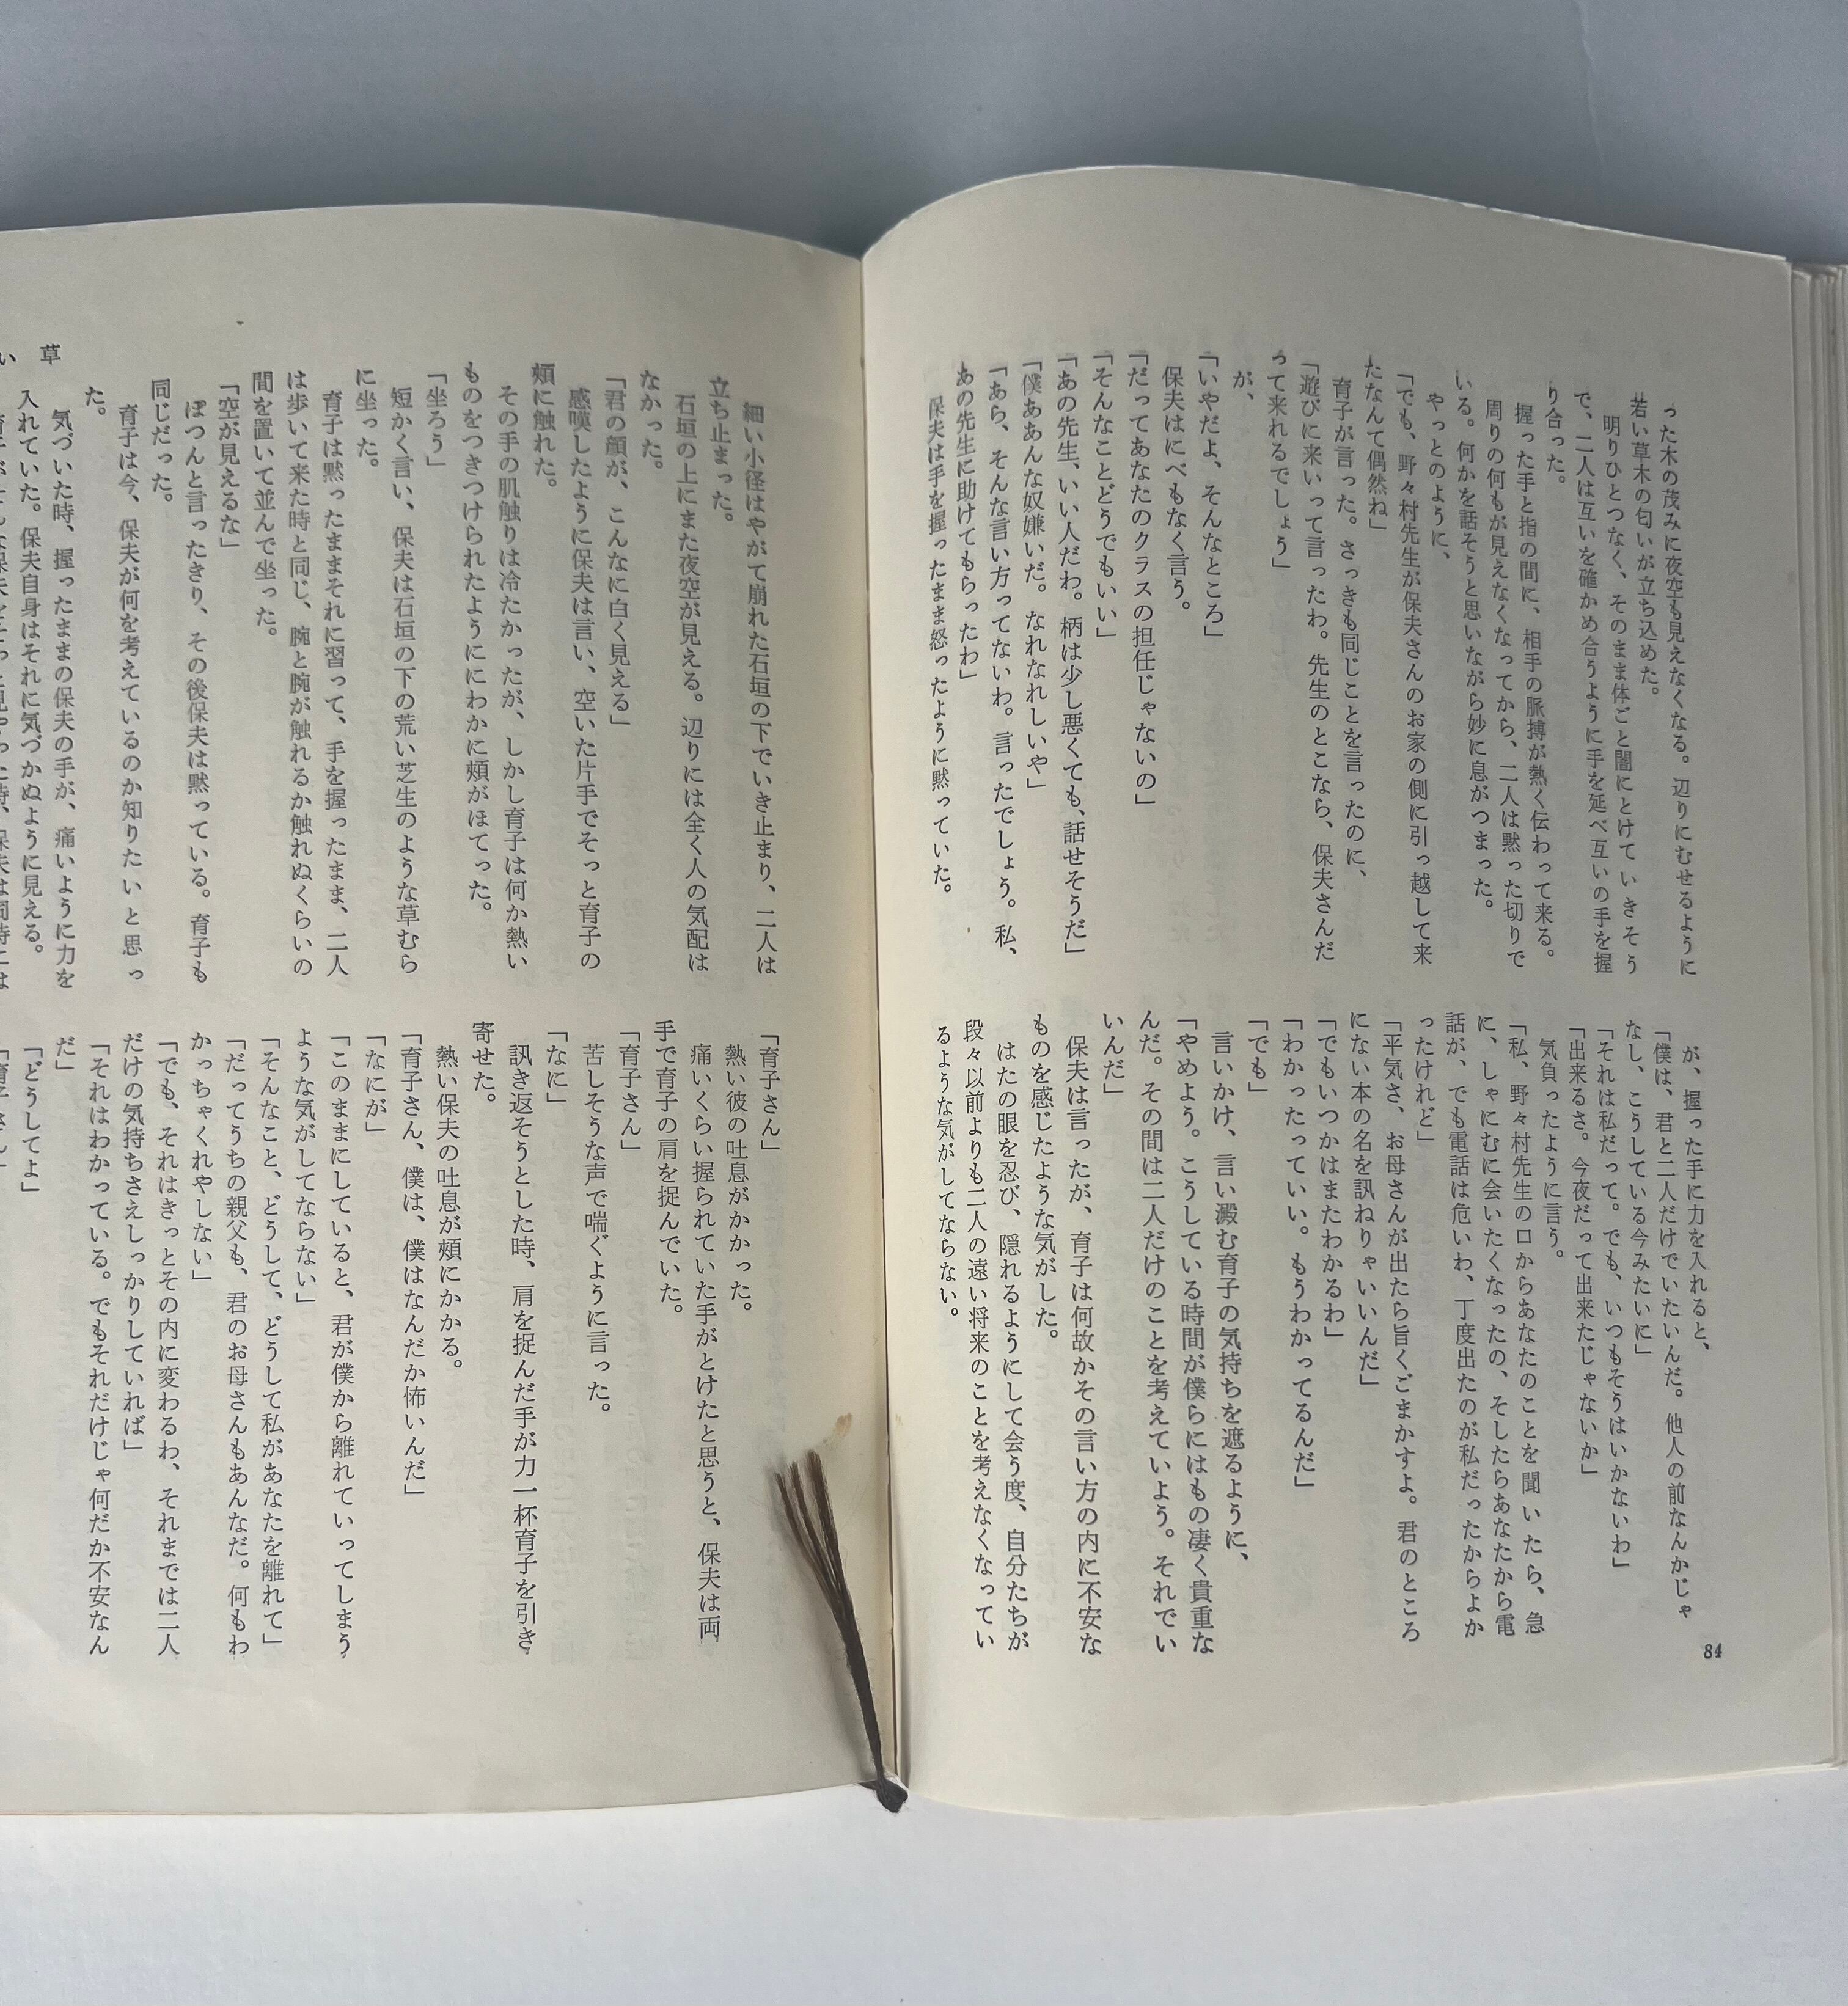 った木の茂みに夜空も見えなくなる。辺りにむせるように
若い草木の匂いが立ち込めた。
明りひとつなく、そのまま体ごと闇にとけていきそう
で、二人は互いを確かめ合うように手を延べ互いの手を握
り合った。
握った手と指の間に、相手の脈搏が熱く伝わって来る。
周りの何もが見えなくなってから、二人は黙った切りで
いる。何かを話そうと思いながら妙に息がつまった。
やっとのように、
「でも、野々村先生が保夫さんのお家の側に引っ越して来
たなんて偶然ね」
育子が言った。さっきも同じことを言ったのに、
「遊びに来いって言ったわ。先生のとこなら、保夫さんだ
って来れるでしょう」
が、
「いやだよ、そんなところ」
保夫はにべもなく言う。
「だってあなたのクラスの担任じゃないの」
「そんなことどうでもいい」
「あの先生、いい人だわ。柄は少し悪くても、話せそうだ」
「僕ああんな奴嫌いだ。なれなれしいや」
「あら、そんな言い方ってないわ。言ったでしょう。私、
あの先生に助けてもらったわ」
保夫は手を握ったまま怒ったように黙っていた。
が、握った手に力を入れると、
「僕は、君と二人だけでいたいんだ。他人の前なんかじゃ
なし、こうしている今みたいに」
「それは私だって。でも、いつもそうはいかないわ」
「出来るさ。今夜だって出来たじゃないか」
気負ったように言う。
「私、野々村先生の口からあなたのことを聞いたら、急
に、しゃにむに会いたくなったの、そしたらあなたから電
話が、でも電話は危いわ、丁度出たのが私だったからよか
ったけれど」
「平気さ、お母さんが出たら旨くごまかすよ。君のところ
にない本の名を訊ねりゃいいんだ」
「でもいつかはまたわかるわ」
「わかったっていい。もうわかってるんだ」
「でも」
言いかけ、言い澱む育子の気持ちを遮るように、
「やめよう。こうしている時間が僕らにはもの凄く貴重な
んだ。その間は二人だけのことを考えていよう。それでい
いんだ」
保夫は言ったが、育子は何故かその言い方の内に不安な
ものを感じたような気がした。
はたの眼を忍び、隠れるようにして会う度、自分たちが
段々以前よりも二人の遠い将来のことを考えなくなってい
るような気がしてならない。
84
細い小径はやがて崩れた石垣の下でいき止まり、二人は
立ち止まった。
石垣の上にまた夜空が見える。辺りには全く人の気配は
なかった。
「君の顔が、こんなに白く見える」
感嘆したように保夫は言い、空いた片手でそっと育子の
頰に触れた。
その手の肌触りは冷たかったが、しかし育子は何か熱い
ものをつきつけられたようににわかに頰がほてった。
「坐ろう」
短かく言い、保夫は石垣の下の荒い芝生のような草むら
に坐った。
育子は黙ったままそれに習って、手を握ったまま、二人
は歩いて来た時と同じ、腕と腕が触れるか触れぬくらいの
間を置いて並んで坐った。
「空が見えるな」
ぽつんと言ったきり、その後保夫は黙っている。育子も
同じだった。
育子は今、保夫が何を考えているのか知りたいと思っ
た。
気づいた時、握ったままの保夫の手が、痛いように力を
入れていた。保夫自身はそれに気づかぬように見える。
「育子さん」
熱い彼の吐息がかかった。
痛いくらい握られていた手がとけたと思うと、保夫は両
手で育子の肩を捉んでいた。
「育子さん」
苦しそうな声で喘ぐように言った。
「なに」
訊き返そうとした時、肩を捉んだ手が力一杯育子を引き
寄せた。
熱い保夫の吐息が頰にかかる。
「育子さん、僕は、僕はなんだか怖いんだ」
「なにが」
「このままにしていると、君が僕から離れていってしまう
ような気がしてならない」
「そんなこと、どうして、どうして私があなたを離れて」
「だってうちの親父も、君のお母さんもあんなだ。何もわ
かっちゃくれやしない」
「でも、それはきっとその内に変わるわ、それまでは二人
だけの気持ちさえしっかりしていれば」
「それはわかっている。でもそれだけじゃ何だか不安なん
だ」
「どうしてよ」
草
い